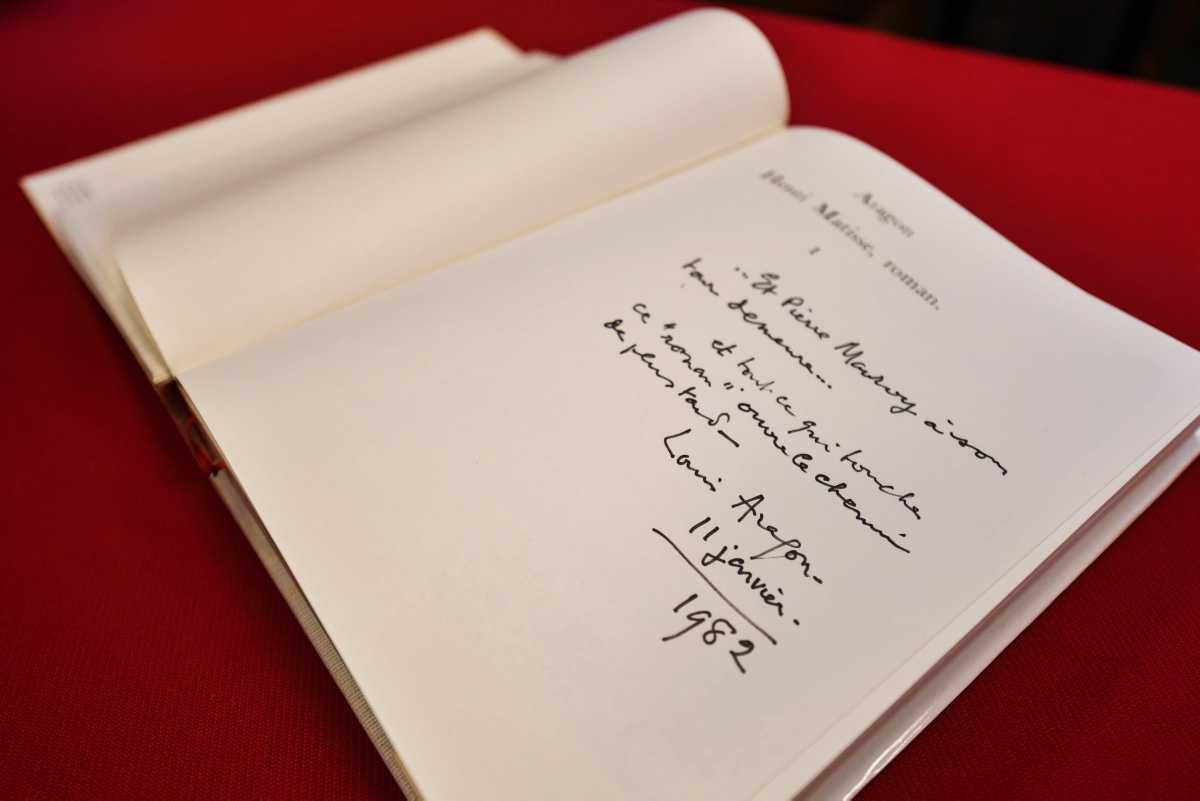 Aragon
Henri Matisse, roman.
I
...Et Pierre Mauroy à son
tour demeure...
et tout ce qui touche
ce "roman" ouvre le chemin
de plus tard—
Louis Aragon-
11 janvier.
1982